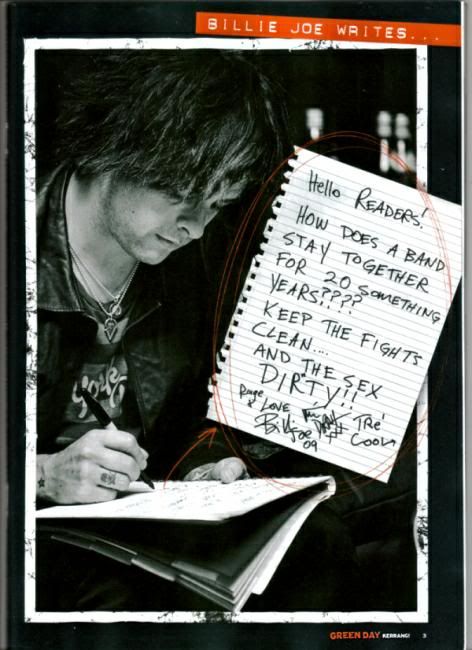 BILLIE JOE WRITES...
Hello READERS!
HOW DOES A BAND
STAY TOGETHER
FOR 20 SOMETHING
YEARS????
KEEP THE FIGHTS
CLEAN...
AND THE SEX
DIRTY!!
Rage
& LOVE
Billie Joe
Tré
Cool
09
GREEN DAY KERRANG! 3